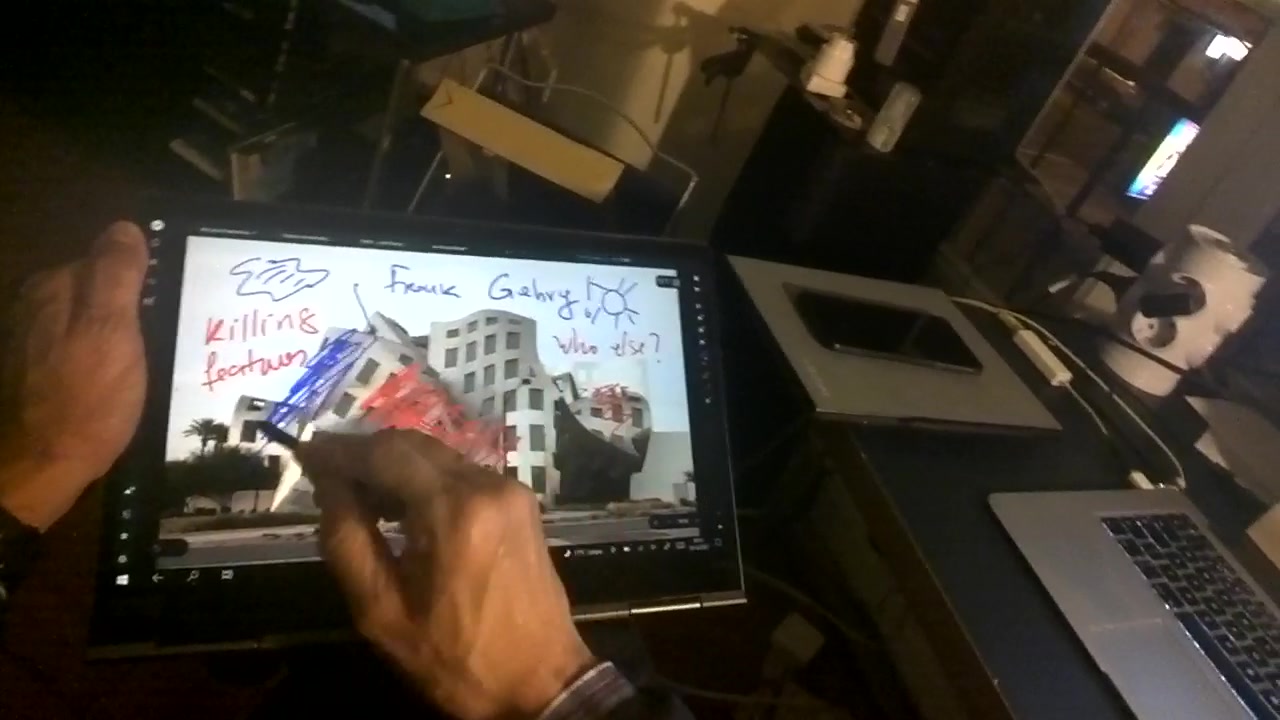 Frank Gehry!
Killing
features
who else?